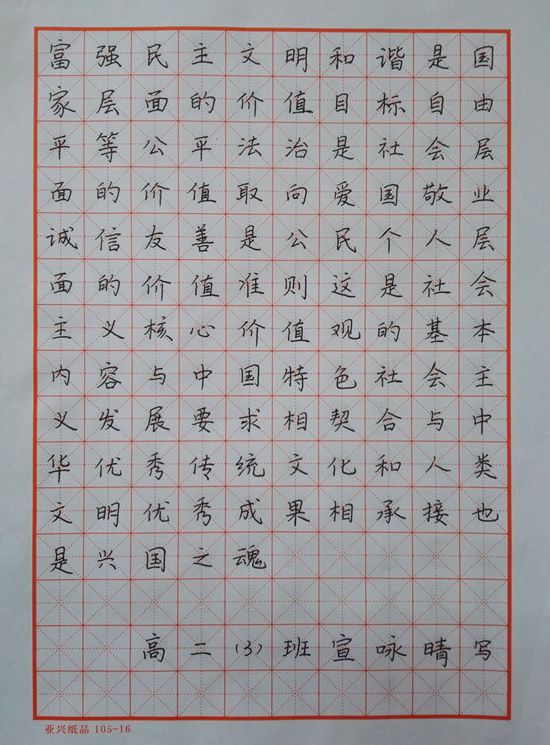 富强民主文明和谐是国
家层面的价值目标自由
平等公平法治是社会层
面的价值取向爱国敬业
诚信友善是公民个人层
面的价值准则这是社会
主义核心价值观的基本
内容与中国特色社会主
义发展要求相契合与中
华优秀传统文化和人类
文明优秀成果相承接也
是兴国之魂
高二(3)班宣咏晴写
亚兴纸品 105-16